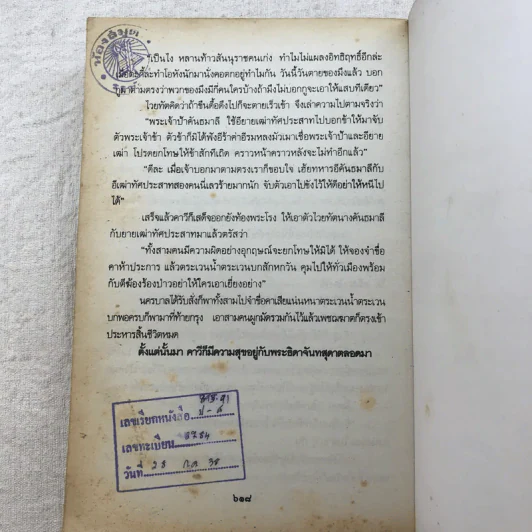 ห้องสมุด
"เป็นไง หลานท้าวสันนุราชคนเก่ง ทำไมไม่แผลงอิทธิฤทธิ์อีกล่ะ
ทำโอหังนักมานั่งคอตกอยู่ทำไมกัน วันนี้วันตายของมึงแล้ว บอก
กูมาตามตรงว่าพวกของมึงมีกี่คนใครบ้างถ้ามึงไม่บอกกูจะเอาให้แสบทีเดียว"
ไวยทัตคิดว่าถ้าขืนดื้อดึงไปก็จะตายเร็วเข้า จึงเล่าความไปตามจริงว่า
"พระเจ้าป้าคันธมาลี ใช้อียายเฒ่าทัศประสาทไปบอกข้าให้มาจับ
ตัวพระเจ้าข้า ตัวข้าก็มิได้ฟังอีร้าค่าอีรมหลงมัวเมาเชื่อพระเจ้าป้าและอียาย
เฒ่า โปรดยกโทษให้ข้าสักทีเถิด คราวหน้าคราวหลังจะไม่ทำอีกแล้ว"
"ดีละ เมื่อเจ้าบอกมาตามตรงเราก็ขอบใจ เฮ้ยทหารอีคันธมาลีกับ
อีเฒ่าทัศประสาทสองคนนี่เลวร้ายมากนัก จับตัวเอาไปขังไว้ให้ดีอย่าให้หนีไป
ได้"
เสร็จแล้วคาวีก็เสด็จออกยังท้องพระโรง ให้เอาตัวไวยทัตนางคันธมาลี
กับยายเฒ่าทัศประสาทมาแล้วตรัสว่า
"ทั้งสามคนมีความผิดอย่างอุกฤษณ์จะยกโทษให้มิได้ ให้จองจำชื่อ
คาห้าประการ แล้วตระเวนน้ำตระเวนบกสักหกวัน คุมไปให้ทั่วเมืองพร้อม
กับตีฆ้องร้องป่าวอย่าให้ใครเอาเยี่ยงอย่าง"
นครบาลได้รับสั่งก็พาทั้งสามไปจำชื่อคาเสียแน่นหนาตระเวนน้ำตระเวน
บกพอครบก็พามาที่ท้ายกรุง เอาสามคนผูกมัดรวมกันไว้แล้วเพชฌฆาตก็ตรงเข้า
ประหารสิ้นชีวิตหมด
ตั้งแต่นั้นมา คาวีก็มีความสุขอยู่กับพระธิดาจันทสุดาตลอดมา
เลขเรียกหนังสือ
เลขทะเบียน
วันที่ 28 ก.ค. 38
๖๑๘